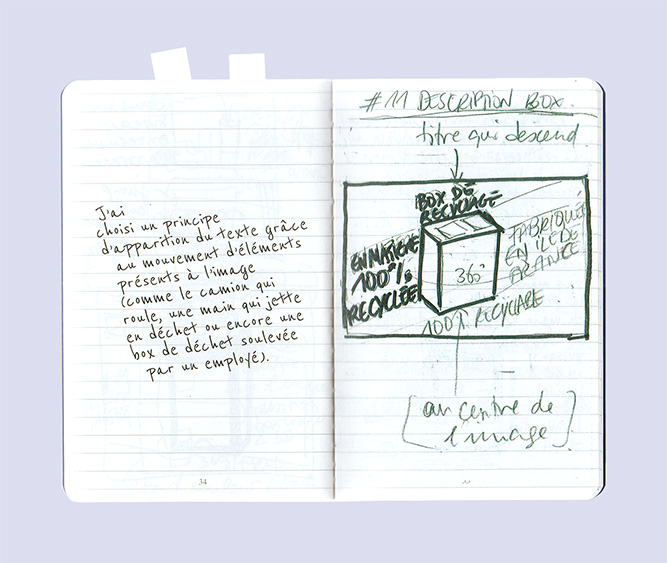 J'ai
choisi un principe
d'apparition du texte grâce
au mouvement d'éléments
présents à l'image
(comme le camion qui
roule, une main qui jette
en déchet ou encore une
box de déchet soulevée
par un employé).
34
#11 DESCRIPTION BOX.
titre qui descend
BOX DE
RECYCLAGE
EN MATIÈRE
100%
RECYCLÉE
360°
FABRIQUÉE
EN ILE DE
FRANCE
100% RECYCLABE
[au centre de
l'image]